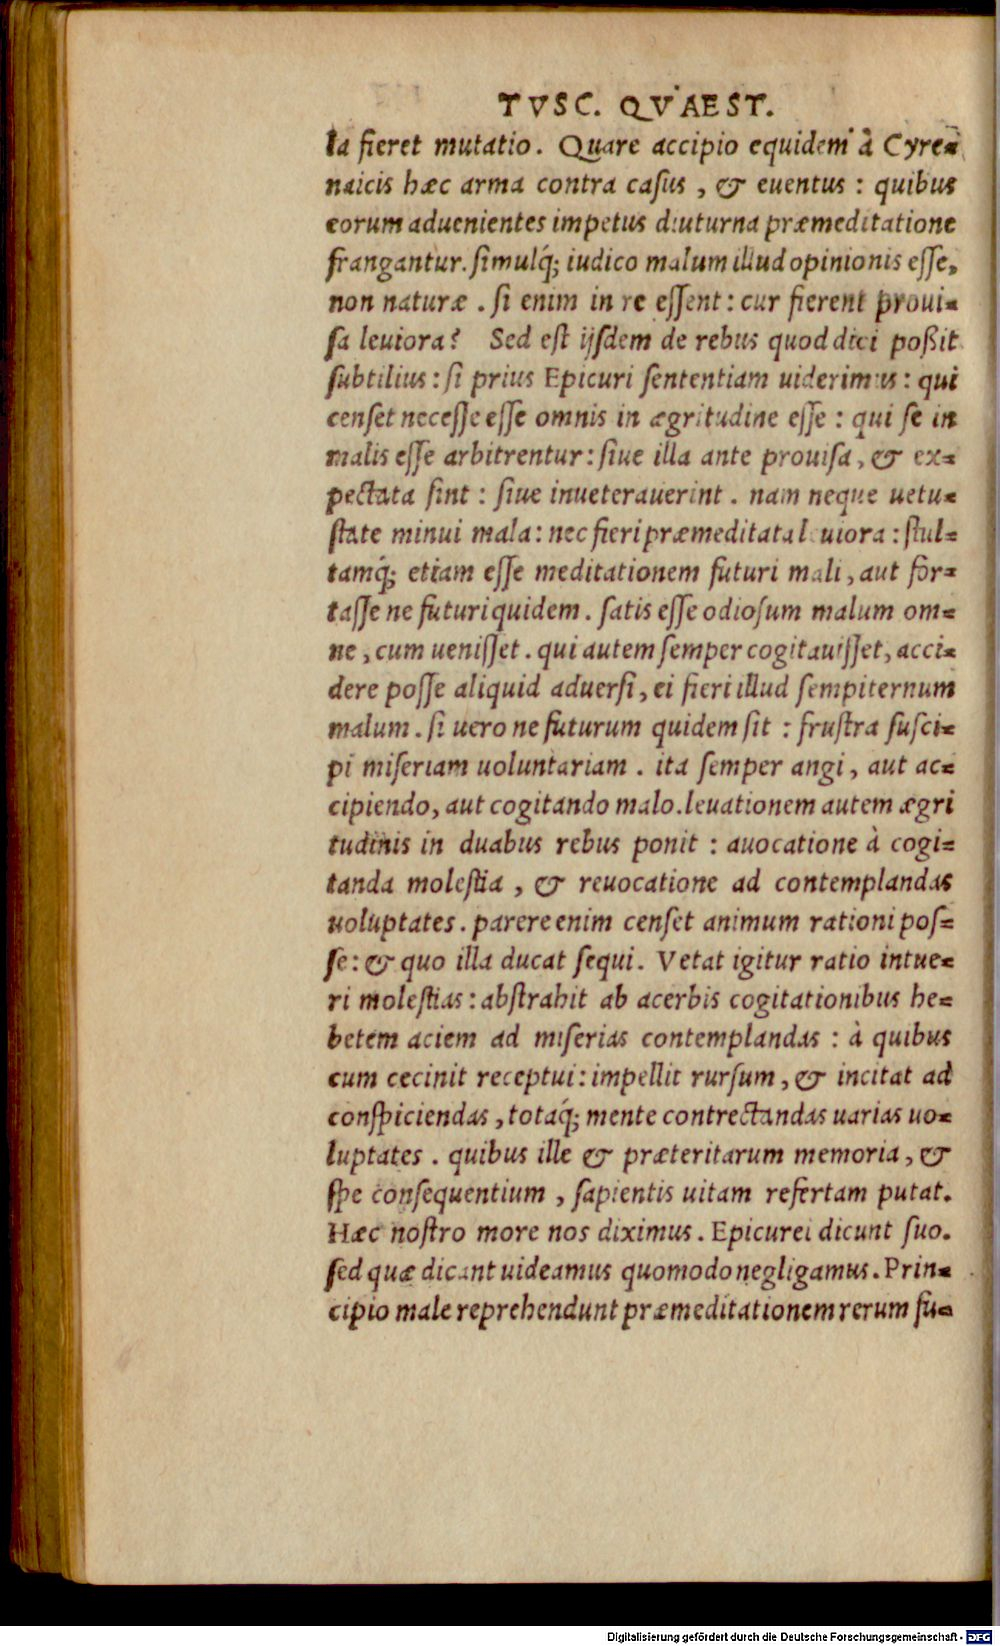 TVSC. QVAEST.
la fieret mutatio. Quare accipio equidem à Cyre=
naicis hæc arma contra casus, & euentus: quibus
eorum aduenientes impetus diuturna præmeditatione
frangantur. simulq́; iudico malum illud opinionis esse,
non naturæ. si enim in re essent: cur fierent proui=
sa leuiora? Sed est ijsdem de rebus quod dici poßit
subtilius: si prius Epicuri sententiam uiderimus: qui
censet necesse esse omnis in ægritudine esse: qui se in
malis esse arbitrentur: siue illa ante prouisa, & ex=
pectata sint: siue inueterauerint. nam neque uetu=
state minui mala: nec fieri præmeditata leuiora: stul=
tamq́; etiam esse meditationem futuri mali, aut for=
tasse ne futuri quidem. satis esse odiosum malum om=
ne, cum uenisset. qui autem semper cogitauisset, acci=
dere posse aliquid aduersi, ei fieri illud sempiternum
malum. si uero ne futurum quidem sit: frustra susci=
pi miseriam uoluntariam. ita semper angi, aut ac=
cipiendo, aut cogitando malo. leuationem autem ægri
tudinis in duabus rebus ponit: auocatione à cogi=
tanda molestia, & reuocatione ad contemplandas
uoluptates. parere enim censet animum rationi pos=
se: & quo illa ducat sequi. Vetat igitur ratio intue=
ri molestias: abstrahit ab acerbis cogitationibus he=
betem aciem ad miserias contemplandas: à quibus
cum cecinit receptui: impellit rursum, & incitat ad
conspiciendas, totaq́; mente contrectandas uarias uo=
luptates. quibus ille & præteritarum memoria, &
spe consequentium, sapientis uitam refertam putat.
Hæc nostro more nos diximus. Epicurei dicunt suo.
sed quæ dicant uideamus quomodo negligamus. Prin=
cipio male reprehendunt præmeditationem rerum fu=
Digitalisierung gefördert durch die Deutsche Forschungsgemeinschaft - DFG